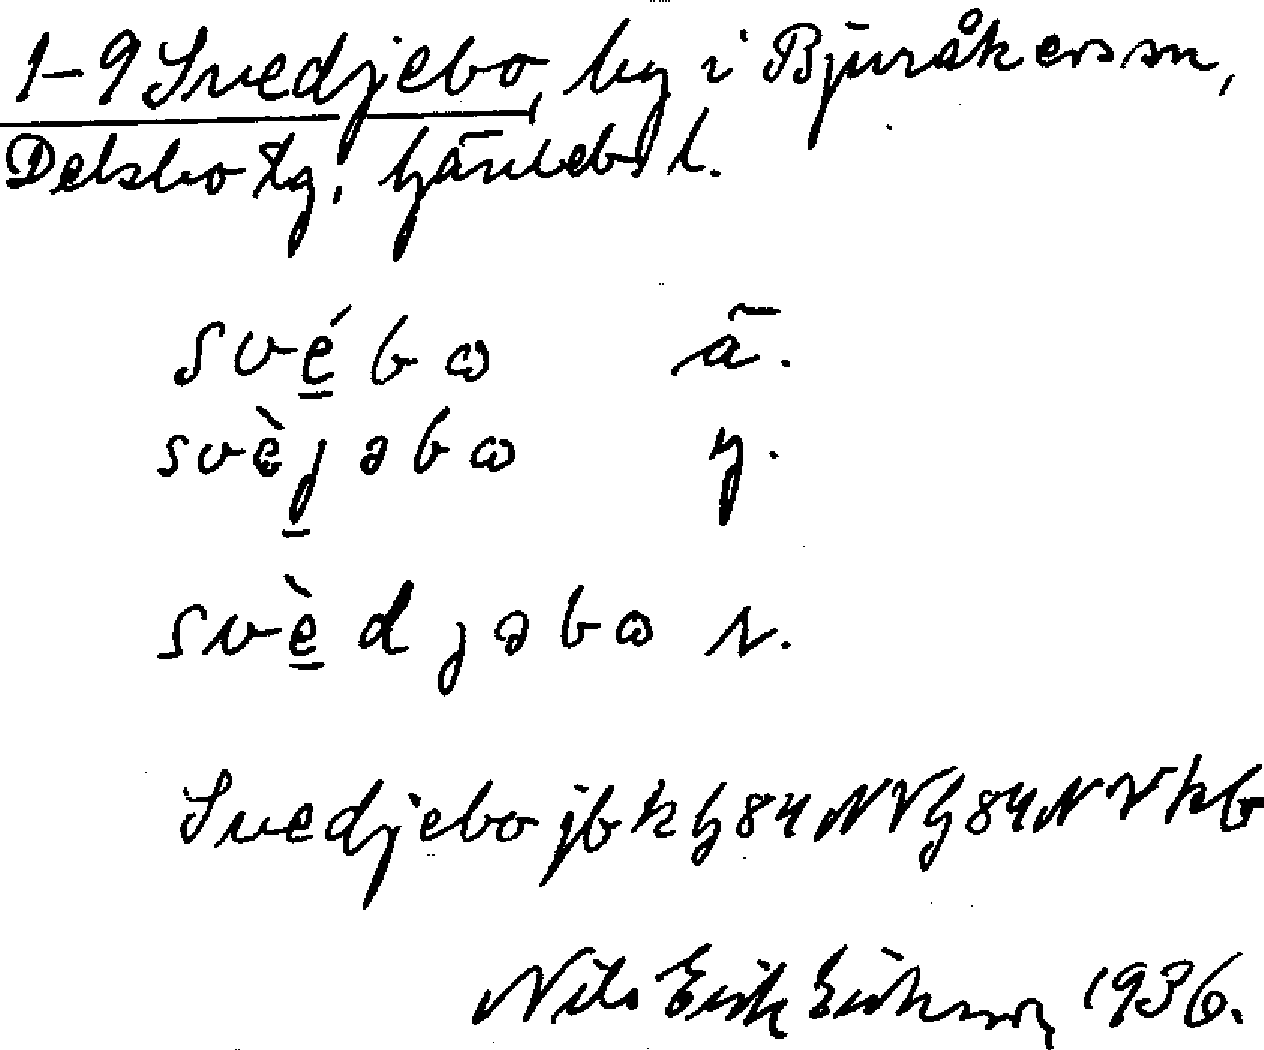 1-9 Svedjebo, by i Bjuråkers sn,
Delsbo tg, Gävleb. l.
své̱bɷ ä.
svèj̱əbɷ y.
svè̱djəbɷ r.
Svedjebo jb k h 84 NV h 84 NV kb
Nils Erik Eriksson 1936.